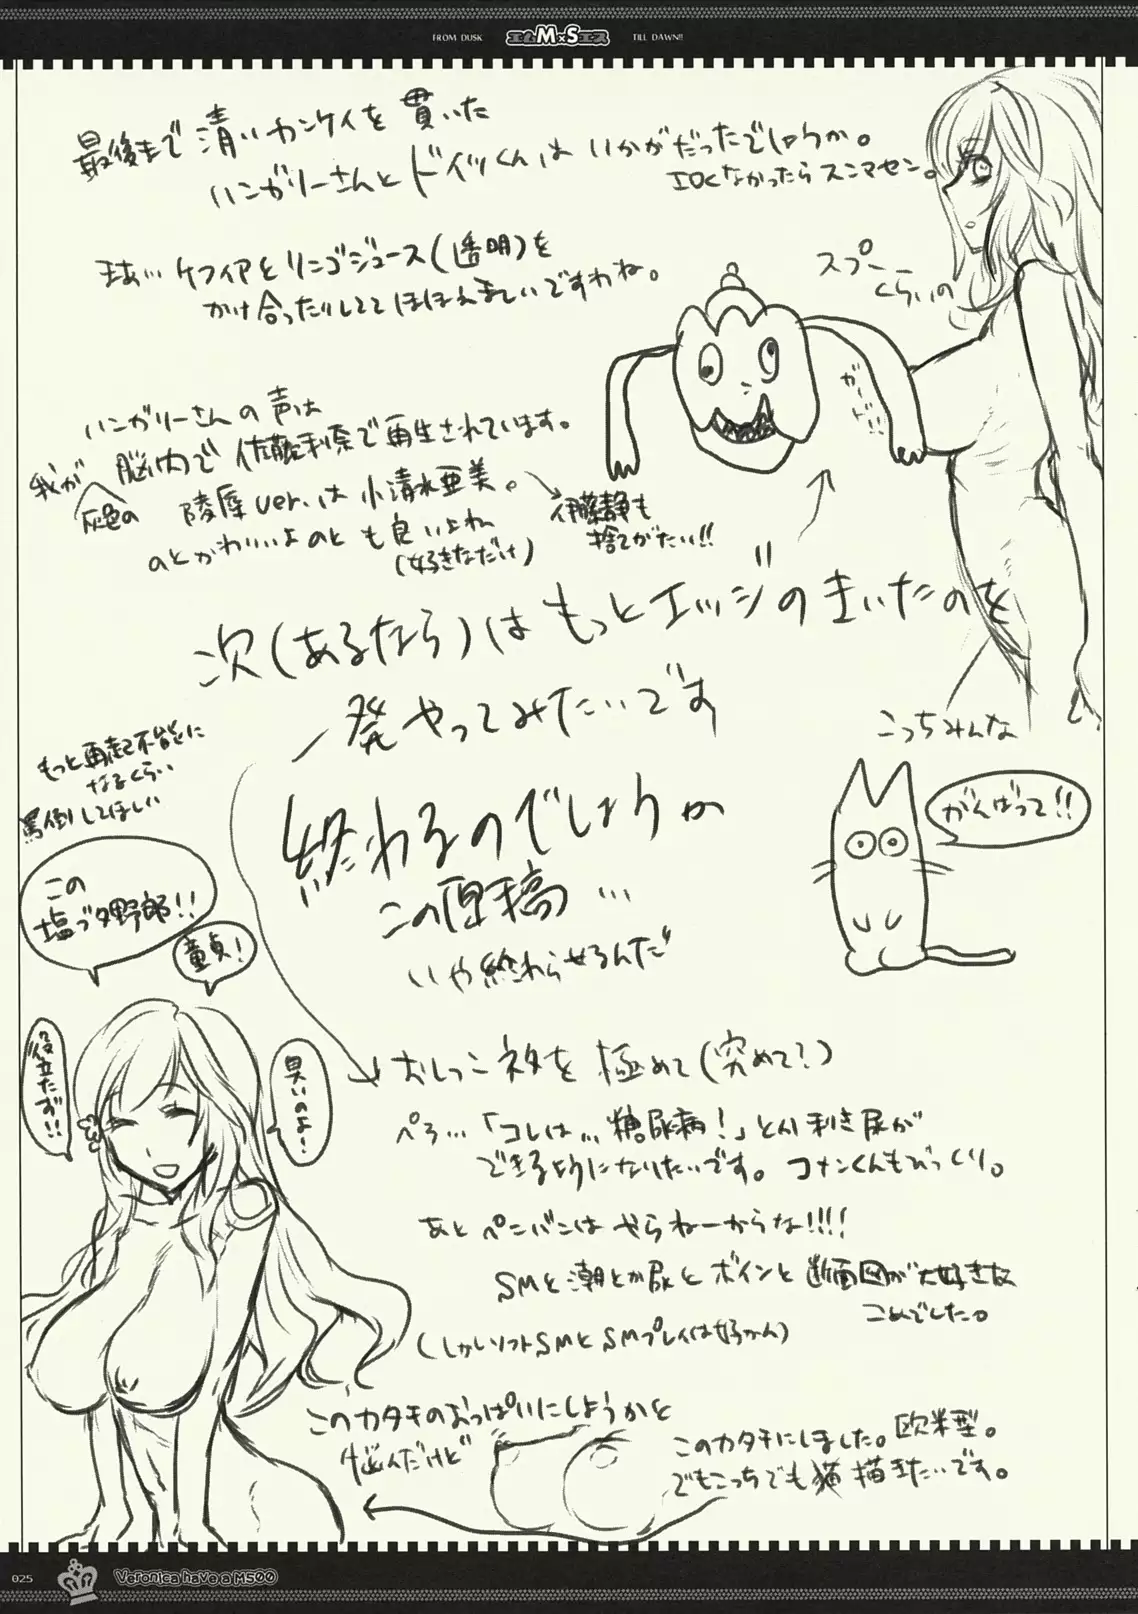 FROM DUSK エムM×Sエス TILL DAWN!!
最後まで清いカンケイを貫いた
ハンガリーさんとドイツくんはいかがだったでしょうか。
エロくなかったらスンマセン。
まあ… ケフィアとリンゴジュース(透明)を
かけ合ったりしててほほえましいですわね。
スプー
くらいの
ガイド
ハンガリーさんの声は
我が 灰色の 脳内で佐藤利奈で再生されています。
陵辱ver.は小清水亜美。
のとかわいいよのとも良いよね
(好きなだけ)
伊藤静も
捨てがたい!!
次(あるなら)はもっとエッジのきいたのを
一発やってみたいです
こっちみんな
がんばって!!
もっと再起不能に
なるくらい
罵倒してほしい
終わるのでしょうか
この原稿…
いや終わらせるんだ
この
塩ブタ野郎!!
童貞!
役立たず!!
臭いのよ!
おしっこネタを極めて(究めて?)
ペろ…「コレは…糖尿病!」とか利き尿が
できるようになりたいです。コナンくんもびっくり。
あとペニバンはやらねーからな!!!!
SMと潮とか尿とボインと断面図が大好きな
こめでした。
(しかしソフトSMとSMプレイは好かん)
このカタチのおっぱいにしようかと
悩んだけど
このカタチにしました。欧米型。
でもこっちでも猫描きたいです。
025 Veronica have a M500